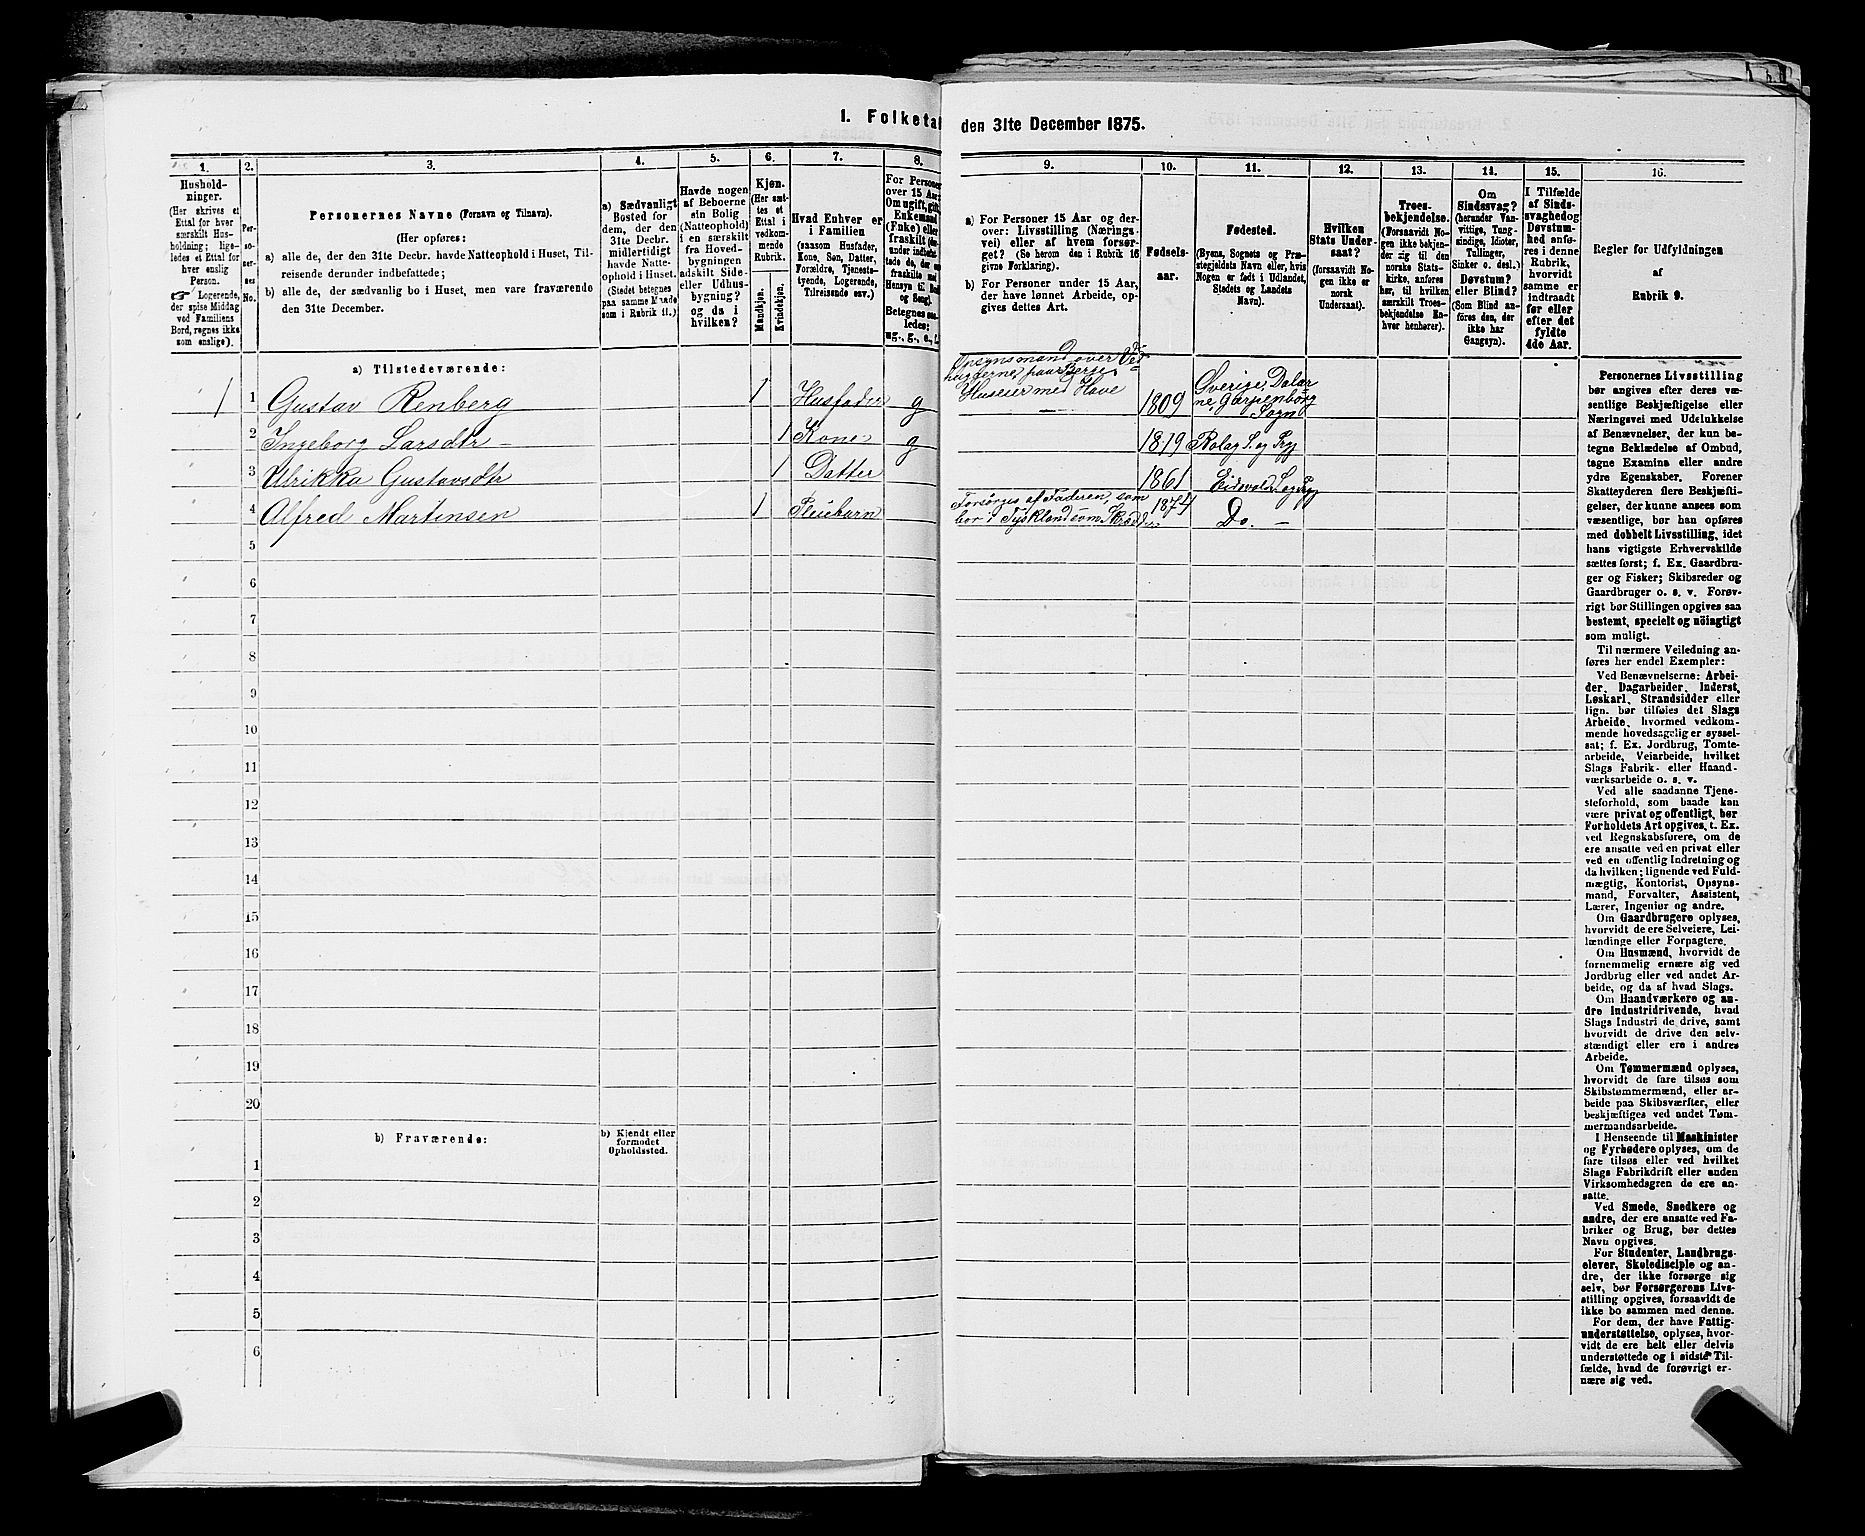 1. Folketal
den 31te December 1875.
1.
Hushold-
ninger.
(Her skrives et
Ettal for hver
særskilt Hus-
holdning; lige-
ledes et Ettal for
hver enslig
Person.
☞ Logerende,
der spise Middag
ved Familiens
Bord, regnes ikke
som enslige).
2.
Per-
so-
ner-
nes
No.
3.
Personernes Navne (Fornavn og Tilnavn).
(Her opføres:
a) alle de, der den 31te Decbr. havde Natteophold i Huset, Til-
reisende derunder indbefattede;
b) alle de, der sædvanlig bo i Huset, men vare fraværende
den 31te December.
4.
a) Sædvanligt
Bosted for
dem, der den
31te Decbr.
midlertidigt
havde Natte-
ophold i Huset.
(Stedet betegnes
paa samme Maade
som i Rubrik 11.)
5.
Havde nogen
af Beboerne
sin Bolig
(Natteophold)
i en særskilt
fra Hoved-
bygningen
adskilt Side-
eller Udhus-
bygning?
og da i
hvilken?
6.
Kjøn.
(Her sæt-
tes et
Ettal i
vedkom-
mende
Rubrik.
Mandkjøn.
Kvindekjøn.
7.
Hvad Enhver er
i Familien
(saasom Husfader,
Kone, Søn, Datter,
Forældre, Tjeneste-
tyende, Logerende,
Tilreisende osv.)
8.
For Personer
over 15 Aar:
Om ugift, gift,
Enkemand
(Enke) eller
fraskilt
Betegnes saa-
ledes:
ug., g., e., f.
9.
a) For Personer 15 Aar og der-
over: Livsstilling (Nærings-
vei) eller af hvem forsør-
get? (Se herom den i Rubrik 16
givne Forklaring).
b) For Personer under 15 Aar,
der have lønnet Arbeide, op-
gives dettes Art.
10.
Fødsels-
aar.
11.
Fødested.
(Byens, Sognets og Præ-
stegjeldets Navn eller, hvis
Nogen er født i Udlandet,
Stedets og Landets
Navn).
12.
Hvilken
Stats Under-
saat?
(forsaavidt No-
gen ikke er
norsk
Undersaat).
13.
Troes-
bekjendelse.
(Forsaavidt No-
gen ikke bekjen-
der sig til den
norske Stats-
kirke, anføres
her, til hvilken
særskilt Troes-
bekjendelse En-
hver henhører).
14.
Om
Sindssvag?
(herunder Van-
vittige, Tung-
sindige, Idioter,
Tullinger,
Sinker o. desl.)
Døvstum?
eller Blind?
(Som Blind an-
føres den, der
ikke har
Gangsyn).
15.
I Tilfælde
af Sinds-
svaghed og
Døvstum-
hed anfø-
res i denne
Rubrik,
hvorvidt
samme er
indtraadt
før eller
efter det
fyldte
4de Aar.
16.
Regler for Udfyldningen
af
Rubrik 9.
a) Tilstedeværende:
1 1 Gustav Renberg 1 Husfader g Opsynsmand over Ved
Huseier med Have 1809 Sverige, Dalar
ne, Garpenborg
Sogn
2 Ingeborg Larsdtr 1 Kone g 1819 Rolag S. og Prgj
3 Ulrikka Gustavsdtr 1 Datter 1861 Eidsvold S og Prgj
4 Alfred Martinsen 1 Pleiebarn Forsørges af Faderen, som
bor i Tyskland som Skrædder 1874 Do. -
5
6
7
8
9
10
11
12
13
14
15
16
17
18
19
20
b) Fraværende:
b) Kjendt eller
formodet
Opholdssted.
1
2
3
4
5
6
Personernes Livsstilling
bør angives efter deres væ-
sentlige Beskjæftigelse eller
Næringsvei med Udelukkelse
af Benævnelser, der kun be-
tegne Beklædelse af Ombud,
tagne Examina eller andre
ydre Egenskaber. Forener
Skatteyderen flere Beskjæfti-
gelser, der kunne ansees som
væsentlige, bør han opføres
med dobbelt Livsstilling, idet
hans vigtigste Erhvervskilde
sættes først; f. Ex. Gaardbru-
ger og Fisker; Skibsreder og
Gaardbruger o. s. v. Forøv-
rigt bør Stillingen opgives saa
bestemt, specielt og nöiagtigt
som muligt.
Til nærmere Veiledning an-
føres her endel Exempler:
Ved Benævnelserne: Arbei-
der, Dagarbeider, Inderst,
Løskarl, Strandsidder eller
lign. bør tilføies det Slags
Arbeide, hvormed vedkom-
mende hovedsagelig er syssel-
sat; f. Ex. Jordbrug, Tomte-
arbeide, Veiarbeide, hvilket
Slags Fabrik- eller Haand-
værksarbeide o. s. v.
Ved alle saadanne Tjene-
steforhold, som baade kan
være privat og offentligt, bør
Forholdets Art opgives, t. Ex.
ved Regnskabsførere, om de
ere ansatte ved en privat eller
ved en offentlig Indretning og
da hvilken; lignende ved Fuld-
mægtig, Kontorist, Opsyns-
mand, Forvalter, Assistent,
Lærer, Ingeniør og andre.
Om Gaardbrugere oplyses,
hvorvidt de ere Selveiere, Lei-
lændinge eller Forpagtere.
Om Husmænd, hvorvidt de
fornemmelig ernære sig ved
Jordbrug eller ved andet Ar-
beide, og da af hvad Slags.
Om Haandværkere og an-
dre Industridrivende, hvad
Slags Industri de drive, samt
hvorvidt de drive den selv-
stændigt eller ere i andres
Arbeide.
Om Tømmermænd oplyses,
hvorvidt de fare tilsøs som
Skibstømmermænd, eller ar-
beide paa Skibsværfter, eller
beskjæftiges ved andet Tøm-
mermandsarbeide.
I Henseende til Maskinister
og Fyrbødere oplyses, om de
fare tilsøs eller ved hvilket
Slags Fabrikdrift eller anden
Virksomhedsgren de ere an-
satte.
Ved Smede, Snedkere og
andre, der ere ansatte ved Fa-
briker og Brug, bør dettes
Navn opgives.
For Studenter, Landbrugs-
elever, Skoledisciple og an-
dre, der ikke forsørge sig
selv, bør Forsørgerens Livs-
stilling opgives, forsaavidt de
ikke bo sammen med denne.
For dem, der have Fattig-
understøttelse, oplyses, hvor-
vidt de ere helt eller delvis
understøttede og i sidste Til-
fælde, hvad de forøvrigt er-
nære sig ved.